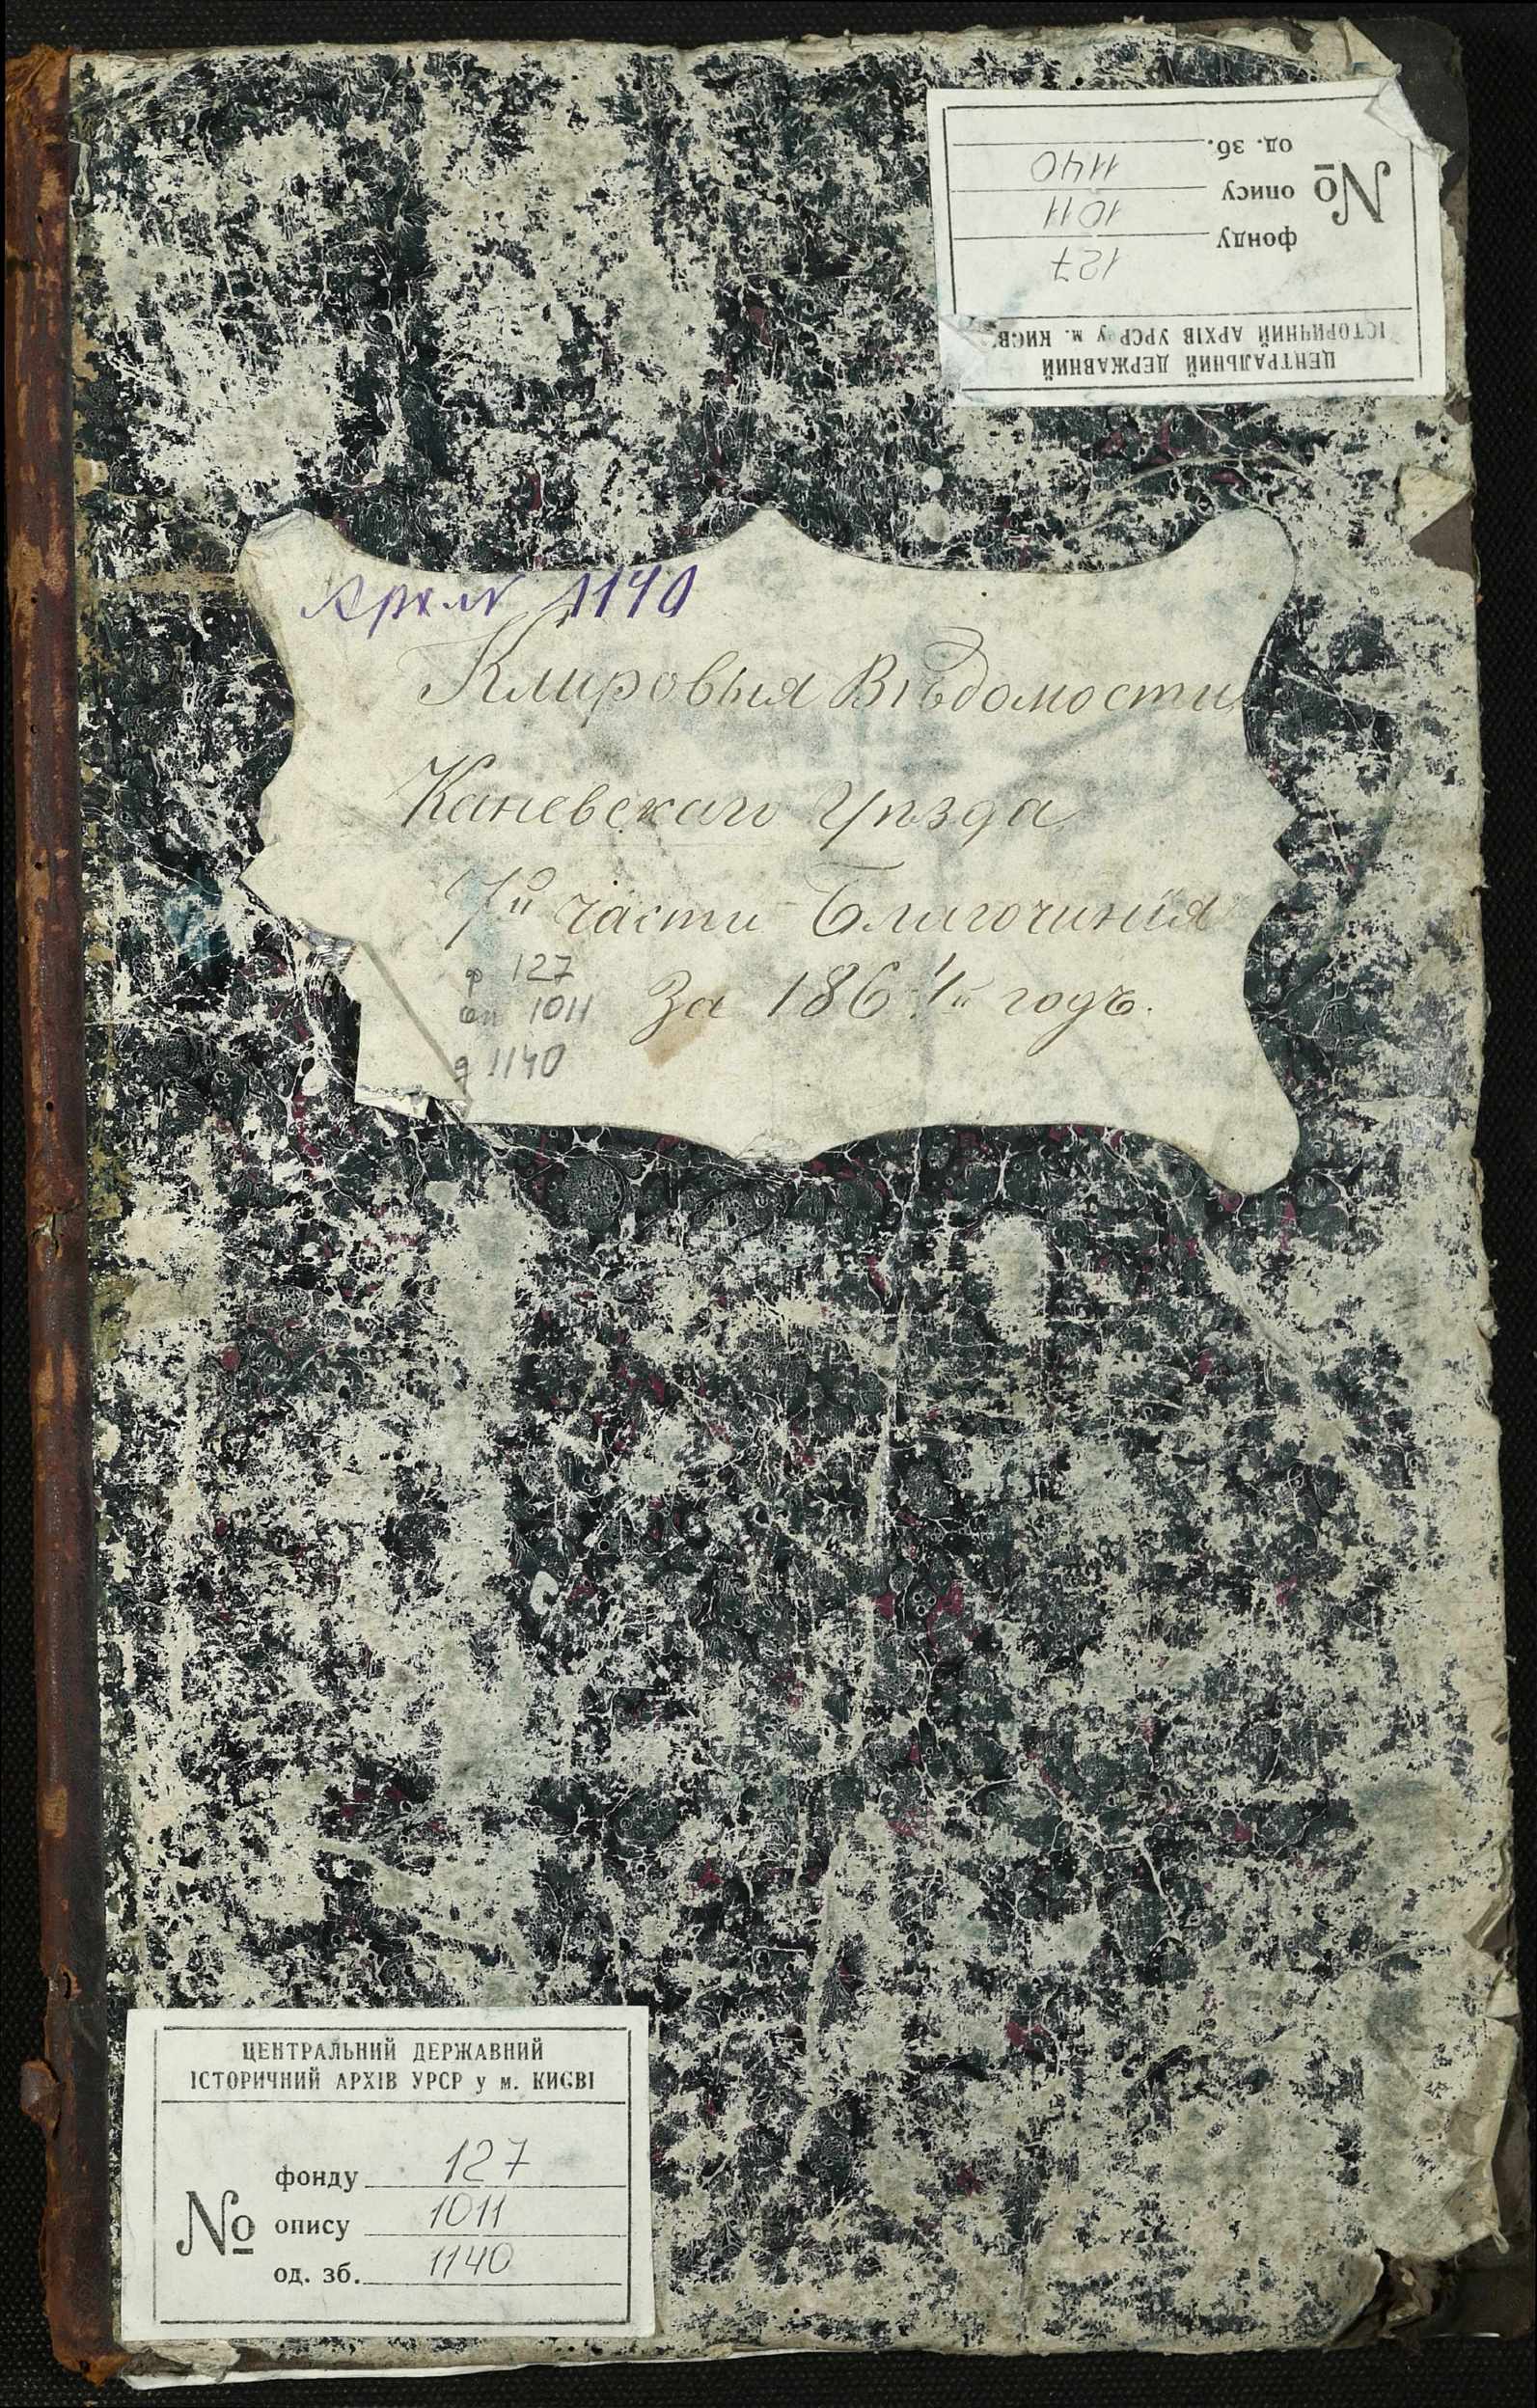 ЦЕНТРАЛЬНИЙ ДЕРЖАВНИЙ
ІСТОРИЧНИЙ АРХІВ УРСР у м. КИЄВІ
№
фонду 127
опису 1011
од. зб. 1140
Арх. № 1140
Клировыя Вѣдомости
Каневскаго Уѣзда
части Благочинія
За 186 годъ.
ф 127
оп 1011
д 1140
ЦЕНТРАЛЬНИЙ ДЕРЖАВНИЙ
ІСТОРИЧНИЙ АРХІВ УРСР у м. КИЄВІ
№
фонду 127
опису 1011
од. зб. 1140